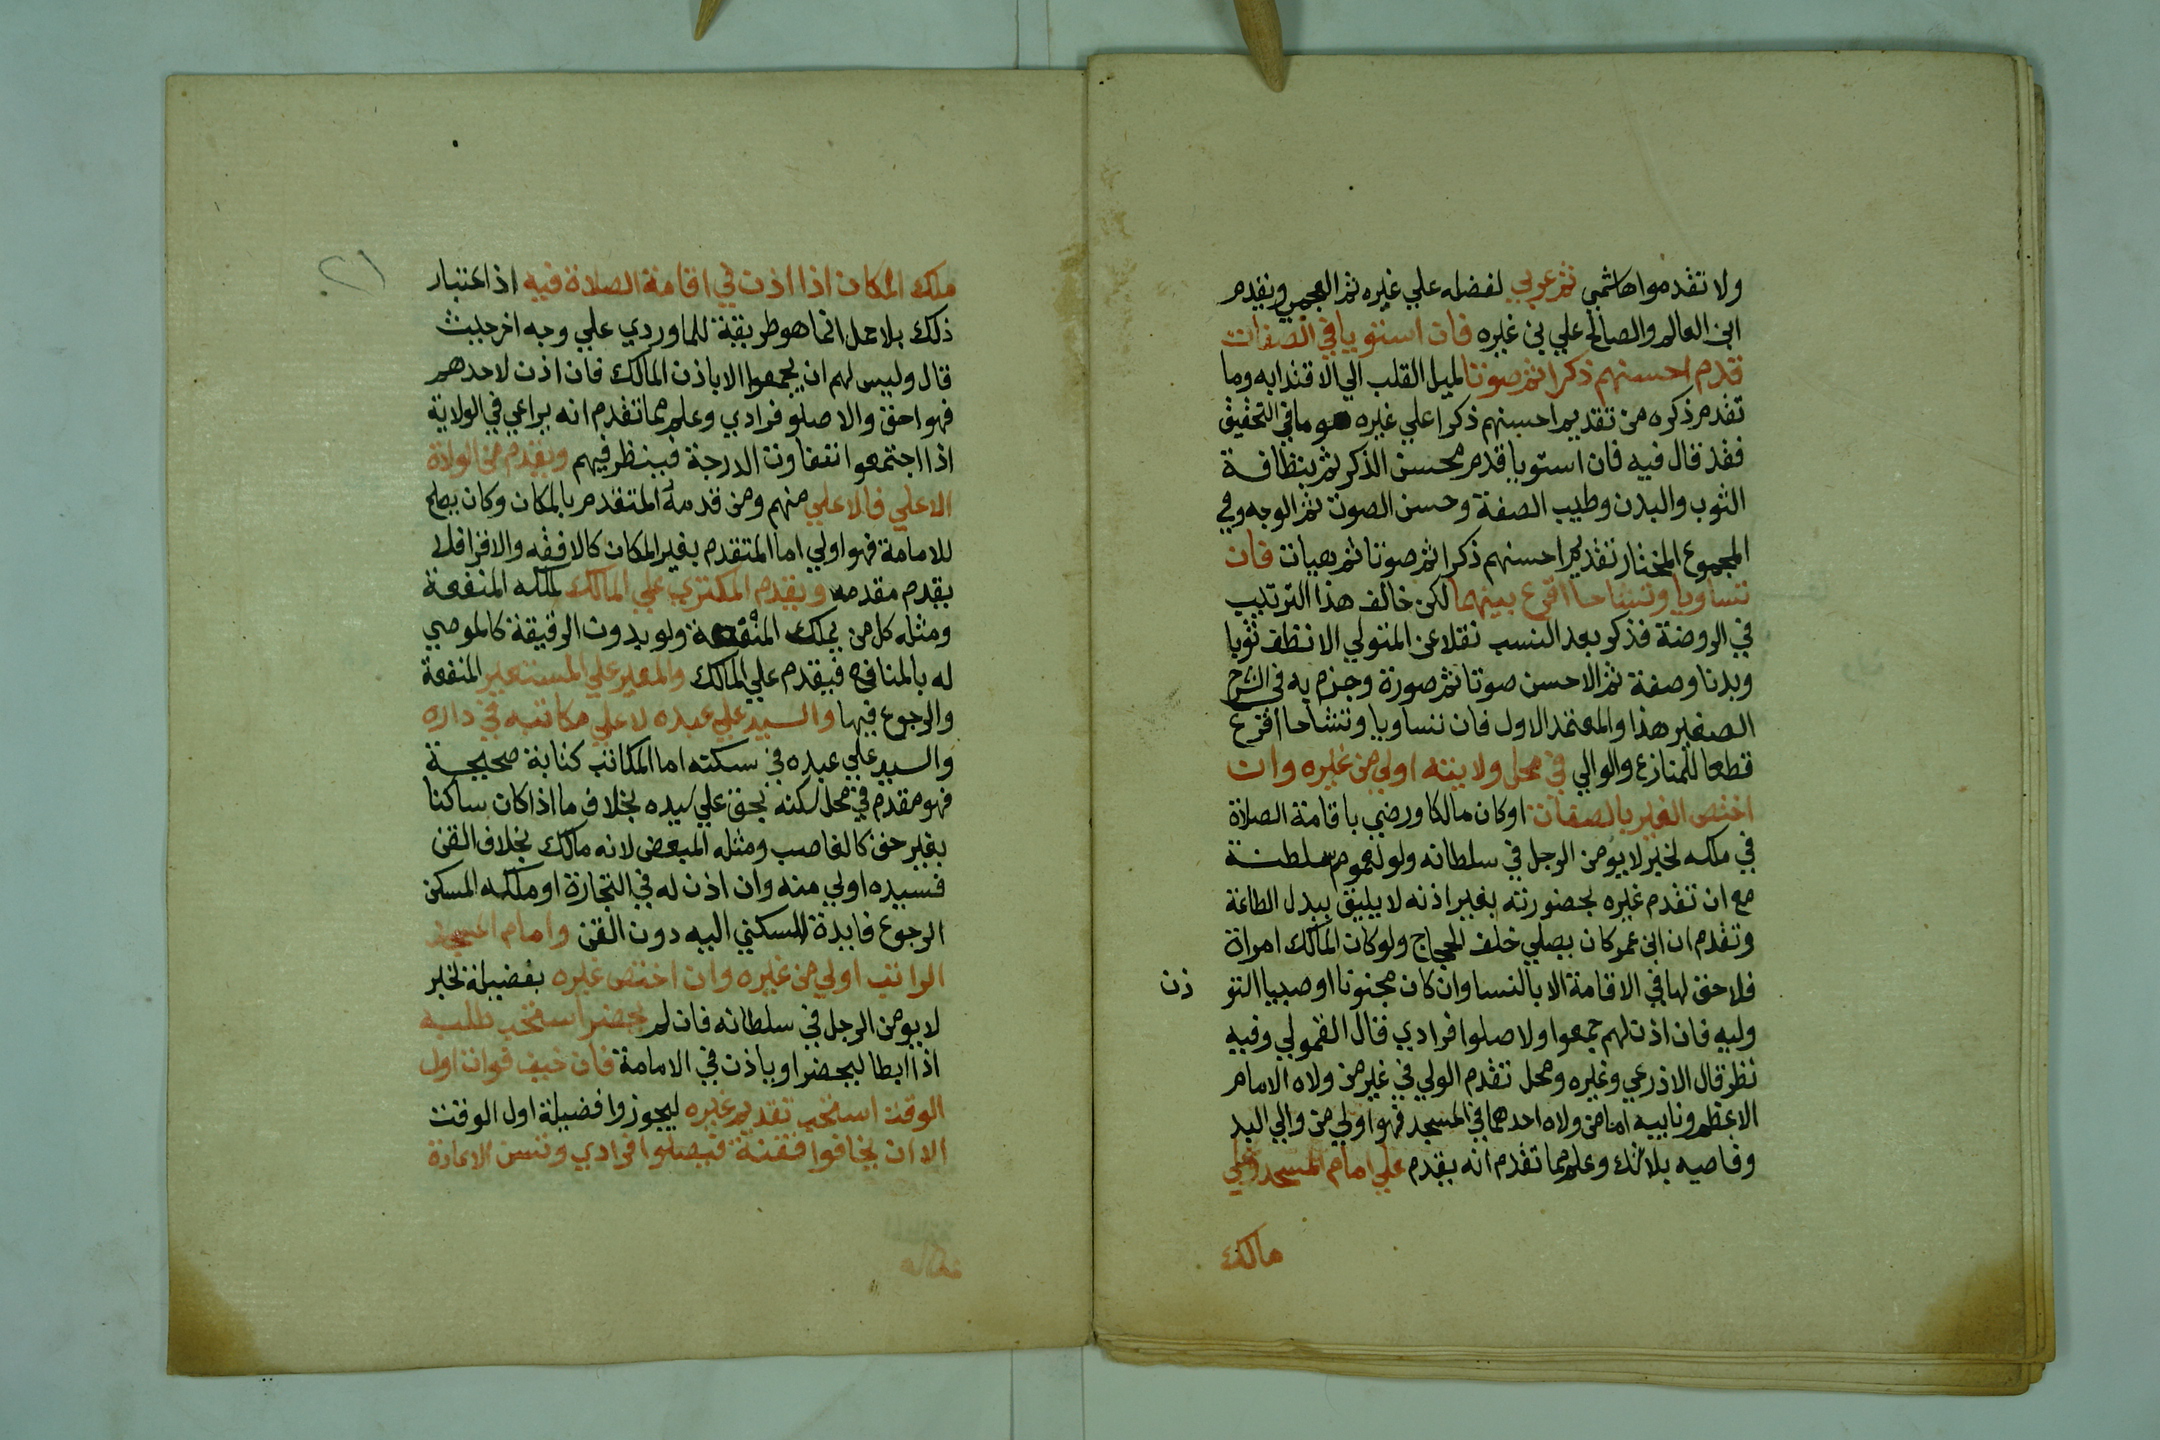 ولا تقدموا هاشمي ثم عربي لفضله علي غيره ثم العجمي ويقدم
ابن العالم والصالح علي بن غيره فان استويا في الصفات
قدم احسنهم ذكرا ثم صوتا لميل القلب الي الاقتدا به وما
تقدم ذكره من تقديم احسنهم ذكرا علي غيره هو ما في التحقيق
فقد قال فيه فان استويا قدم بحسن الذكر ثم بنظافة
الثوب والبدن وطيب الصفة وحسن الصوت ثم الوجه وفي
المجموع المختار تقديم احسنهم ذكرا ثم صوتا ثم هيات فان
تساويا وتشاحا اقرع بينهما لكن خالف هذا الترتيب
في الروضة فذكر بعد النسب نقلا عن المتولي الانظف ثوبا
وبدنا وصفة ثم الاحسن صوتا ثم صورة وجزم به في الشرح
الصغير هذا والمعتمد الاول فان تساويا وتشاحا اقرع
قطعا للمنازع والوالي في محل ولايته اولي من غيره وان
اختص الغير بالصفات او كان مالكا ورضي باقامة الصلاة
في ملكه لخبر لا يؤمن الرجل في سلطانه ولو لعموم سلطنة
مع ان تقدم غيره بحضورته بغير اذنه لا يليق ببدل الطاعة
وتقدم ان ابن عمر كان يصلي خلف الحجاج ولو كان المالك امراة
فلا حق لها في الاقامة الا بالنسا وان كان مجنونا او صبيا التو
ذن
وليه فان اذن لهم جمعوا ولا صلوا فرادي فقال القمولي وفيه
نظر قال الاذرعي وغيره ومحل تقدم الولي في غير من ولاه الامام
الاعظم ونايبه امامن ولاه احدهما في المسجد فهو اولي من والي البلد
وقاضيه بلا شك وعلم مما تقدم انه يقدم علي امام المسجد وعلي
مالك
٢١
ملك المكان اذا اذن في اقامة الصلاة فيه اذ اعتبار
ذلك بلا حمل انما هو طريقة للماوردي علي وجه اخر حيث
قال وليس لهم ان يجمعوا الا باذن المالك فان اذن لاحدهم
فهو احق والا صلو فرادي وعلم مما تقدم انه يراعي في الولاية
اذا اجتمعوا تفاوت الدرجة فينظر فيهم ويقدم من الولاة
الاعلي فالاعلي منهم ومن قدمه المتقدم بالمكان وكان يصلح
للامامة فهو اولي اما المتقدم بغير المكان كالافقه والاقرا فلا
يقدم مقدمه ويقدم المكتري علي المالك لملكه المنفعة
ومثله كل من يملك المنفعة ولو بدون الرقيقة كالموصي
له بالمنافع فيقدم علي المالك والمعير علي المستعير المنفعة
والرجوع فيها والسيد علي عبده لا علي مكاتبه في داره
والسيد علي عبده في سكنه اما المكاتب كتابة صحيحة
فهو مقدم في محل سكنه بحق علي سيده بخلاف ما اذا كان ساكنا
بغير حق كالغاصب ومثله المبعض لانه مالك بخلاف القن
فسيده اولي منه وان اذن له في التجارة او ملكه المسكن
الرجوع فايدة السكني اليه دون القن وامام المسجد
الراتب اولي من غيره وان اختص غيره بفضيلة لخبر
لا يؤمن الرجل في سلطانه فان لم يحضر استحب طلبه
اذا ابطا ليحضر او ياذن في الامامة فان خيف فوات اول
الوقت استحب تقديم غيره ليجوزوا فضيلة اول الوقت
الا ان يخافوا فتنة فيصلوا فرادي وتسن الاعادة